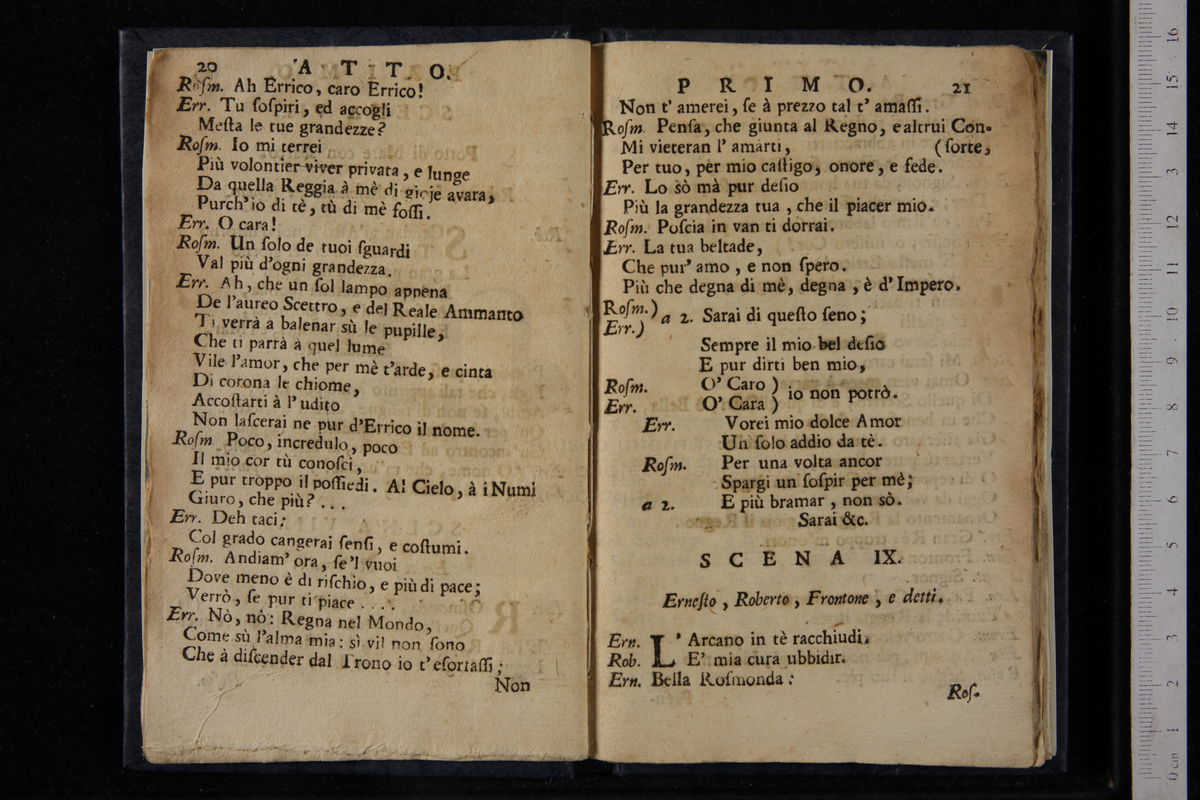 20 ATTO.
Rosm. Ah Errico, caro Errico!
Err. Tu sospiri, ed accogli
Mesta le tue grandezze?
Rosm. Io mi terrei
Più volontier viver privata, e lunge
Da quella Reggia à mè di gioje avara,
Purch'io di tè, tù di mè fossi.
Err. O cara!
Rosm. Un solo de tuoi sguardi
Val più d'ogni grandezza.
Err. Ah, che un sol lampo appena
De l'aureo Scettro, e del Reale Ammanto
Ti verrà a balenar sù le pupille,
Che ti parrà a quel lume
Vile l'amor, che per mè t'arde, e cinta
Di corona le chiome,
Accostarti à l'udito
Non lascerai ne pur d'Errico il nome.
Rosm Poco, incredulo, poco
Il mio cor tù conosci,
E pur troppo il possiedi. Al Cielo, à i Numi
Giuro, che più? ...
Err. Deh taci;
Col grado cangerai sensi, e costumi.
Rosm. Andiam' ora, se'l vuoi
Dove meno è di rischio, e più di pace;
Verrò, se pur ti piace . . . .
Err. Nò, nò: Regna nel Mondo,
Come sù l'alma mia: sì vil non sono
Che à discender dal Trono io t'esortassi;
Non
PRIMO. 21
Non t'amerei, se à prezzo tal t'amassi.
Rosm. Pensa, che giunta al Regno, e altrui Con-
Mi vieteran l'amarti, (sorte,
Per tuo, per mio castigo, onore, e fede.
Err. Lo sò mà pur desio
Più la grandezza tua, che il piacer mio.
Rosm. Poscia in van ti dorrai.
Err. La tua beltade,
Che pur' amo, e non spero.
Più che degna di mè, degna, è d'Impero.
Rosm.) a 2. Sarai di questo seno;
Err.)
Sempre il mio bel desio
E pur dirti ben mio,
Rosm. O' Caro ) io non potrò.
Err. O' Cara )
Err. Vorei mio dolce Amor
Un solo addio da tè.
Rosm. Per una volta ancor
Spargi un sospir per mè;
a 2. E più bramar, non sò.
Sarai &c.
SCENA IX.
Ernesto, Roberto, Frontone, e detti.
Ern. L'Arcano in tè racchiudi.
Rob. E' mia cura ubbidir.
Ern. Bella Rosmonda:
Ros.
0 cm 1 2 3 4 5 6 7 8 9 10 11 12 13 14 15 16